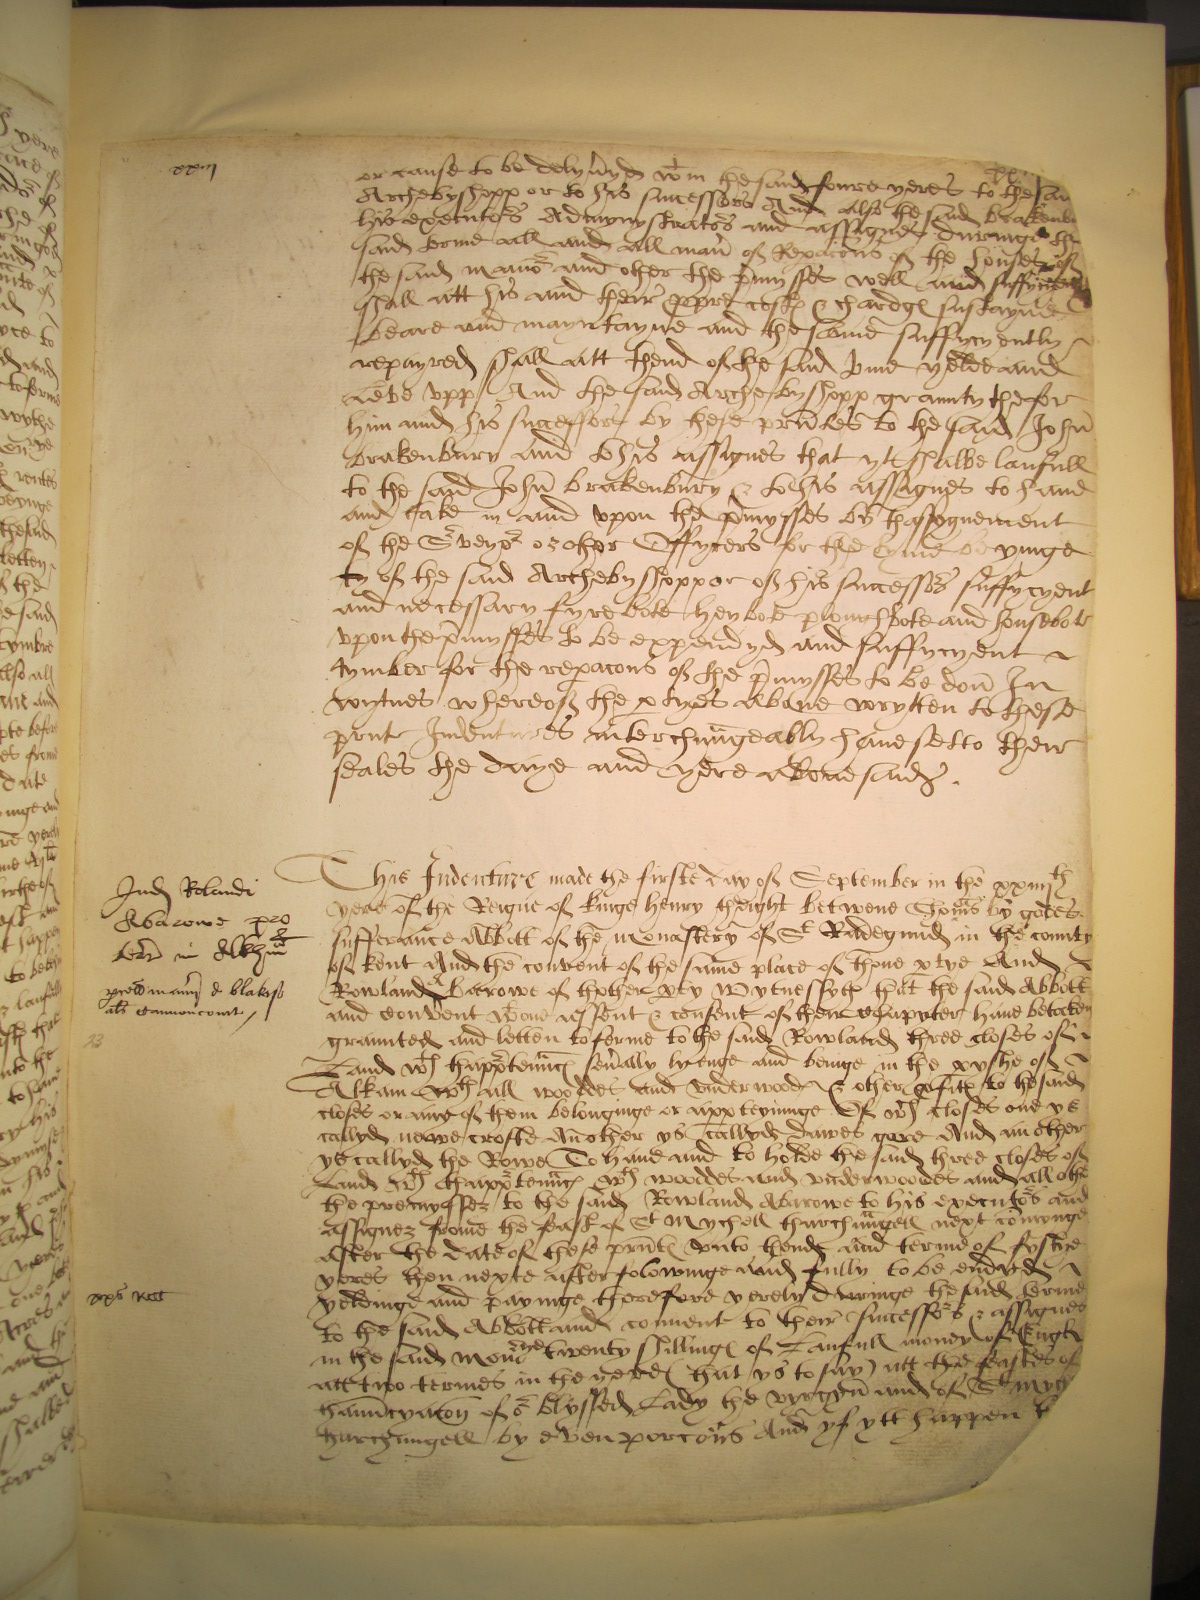 or cause to be delyvyd wtin the said foure yeres to the sai
Archebyshopp or to his successors And also the said brakenbu
his executors Admynystrators and assignes duringe the
said terme all and all manr of Repacons of the houses of
the said manor and other the pmysses well and suffycyent
shall att his and their ppre costs & chardgs susteyne
beare and mayntayne and the same suffycyently
repayred shall att thend of the said tme yelde and
leve upp And the said Archebyshopp grauntythe for
him and his successors by these prntes to the said John
brakenbury and to his assignes that yt shalbe laufull
to the said John brakenbury & to his assignes to have
and take in and upon the pmysses by thassygnement
of the Surveyor or other Offycers for the tyme beynge
of the said Archebyshopp or of his successors suffycyent
and necessary fyrebote heybote ploughbote and housebote
upon the pmysses to be expendyd and suffycyent
tymber for the repacons of the pmysses to be don In
wytnes whereof the ptyes above wrytten to these
prnte Indentures interchungeably have sett to their
seales the daye and yere abovesaid.
This Indenture made the firste day of September in the xxiiijth
yere of the Reigne of kinge henry theight betwene Thoms by godes
sufferance Abbott of the monastery of St Radegund in the county
of kent And the convent of the same place of thone ptye And
Rowland Abarowe of thother pty Wytnessyth that the said Abbott
and convent wt one assent & consent of their Chapyter have betaken
graunted and letten to ferme to the said Rowland three closes of
Land wth thapptenncs sevally lyenge and beinge in the pyshe of
Alkam wth all woodes and underwoods & other pfitts to the said
closes or any of them belonginge or appteyninge Of wch closes one ys
callyd newe crofte Another ys callyd dawes gore And an other
ys callyd the Rowe To have and to holde the said three closes of
Land wth thapptenncs wth woodes and underwoodes and all othe
the premysses to the said Rowland Abarowe to his executors and
assignez frome the feast of St Mychell tharchungell next comynge
after the date of these prnts unto thende and terme of fystye
yeres then nexte after folowinge and fully to be endyd
yeldinge and payinge therefore yerely duringe the said terme
to the said Abbott and convent to their successors & assignes
in the said Mon twenty shillings of Laufull money of Engl
att two termes in the yere (that ys to say) att the feastes of
thanncyacon of or blyssed Lady the vyrgyn and of St Mych
tharchungell by even porcons And yf ytt happen
Ind Rolandi
Abarowe pro
terr in Alkhm
als cannoncourt
33